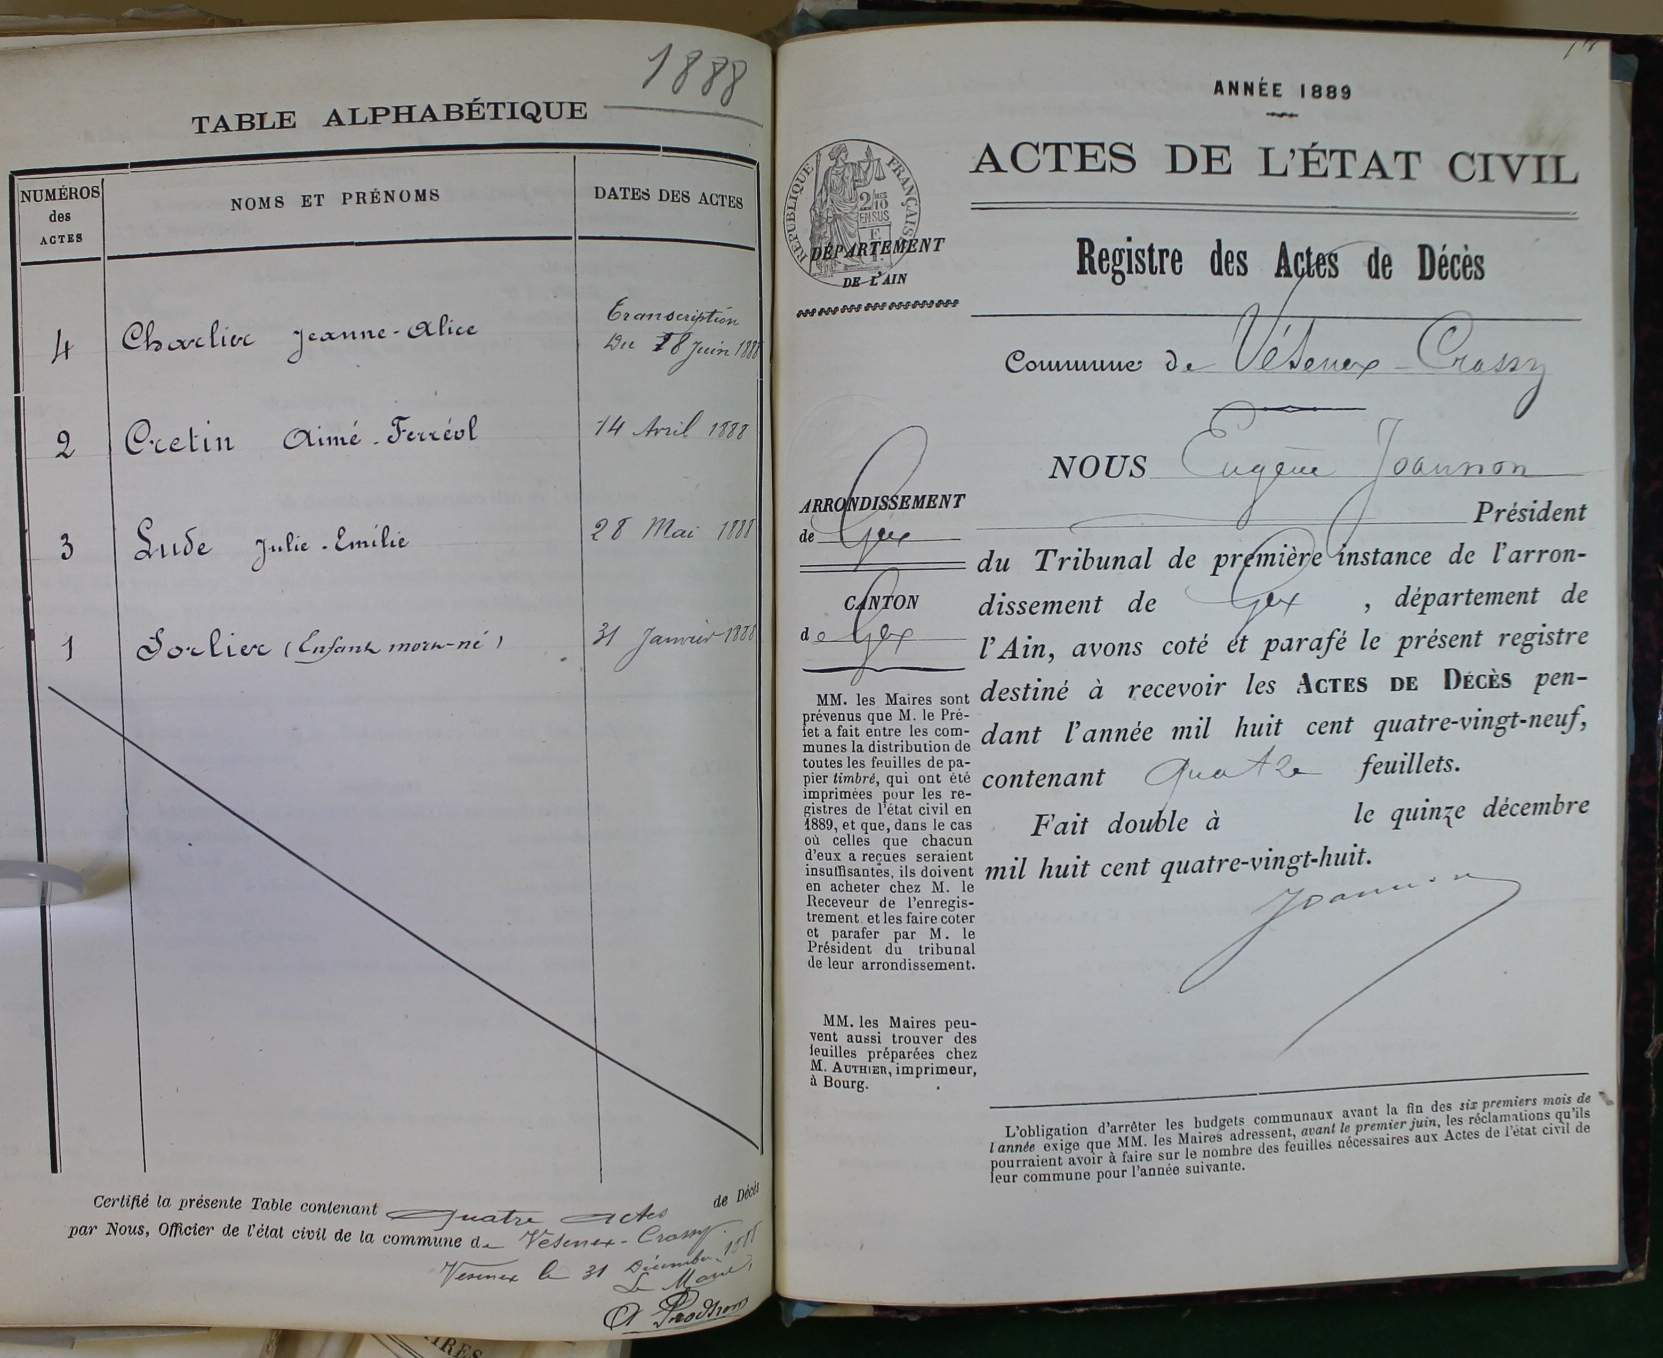 1888
TABLE ALPHABÉTIQUE
NUMÉROS
des
ACTES
NOMS ET PRÉNOMS
DATES DES ACTES
4 Charlier Jeanne-Alice Transcription
Du 18 Juin 1888
2 Cretin Aimé-Ferréol 14 Avril 1888
3 Lude Julie-Emilie 28 Mai 1888
1 Sorlier (Enfant mort-né) 31 Janvier 1888
Certifié la présente Table contenant quatre actes de Décès
par Nous, Officier de l'état civil de la commune de Vésenex-Crassy.
Vésenex le 31 Décembre 1888
Le Maire,
A Prodhom
ANNÉE 1889
ACTES DE L'ÉTAT CIVIL
RÉPUBLIQUE FRANÇAISE
2/10
EN SUS
DÉPARTEMENT
DE L'AIN
Registre des Actes de Décès
Commune de Vésenex-Crassy
NOUS Eugène Joannon
Président
du Tribunal de première instance de l'arron-
dissement de Gex, département de
l'Ain, avons coté et parafé le présent registre
destiné à recevoir les ACTES DE DÉCÈS pen-
dant l'année mil huit cent quatre-vingt-neuf,
contenant quatre feuillets.
Fait double à le quinze décembre
mil huit cent quatre-vingt-huit.
Joannon
ARRONDISSEMENT
de Gex
CANTON
de Gex
MM. les Maires sont
prévenus que M. le Pré-
fet a fait entre les com-
munes la distribution de
toutes les feuilles de pa-
pier timbré, qui ont été
imprimées pour les re-
gistres de l'état civil en
1889, et que, dans le cas
où celles que chacun
d'eux a reçues seraient
insuffisantes, ils doivent
en acheter chez M. le
Receveur de l'enregis-
trement et les faire coter
et parafer par M. le
Président du tribunal
de leur arrondissement.
MM. les Maires peu-
vent aussi trouver des
feuilles préparées chez
M. AUTHIER, imprimeur,
à Bourg.
L'obligation d'arrêter les budgets communaux avant la fin des six premiers mois de
l'année exige que MM. les Maires adressent, avant le premier juin, les réclamations qu'ils
pourraient avoir à faire sur le nombre des feuilles nécessaires aux Actes de l'état civil de
leur commune pour l'année suivante.